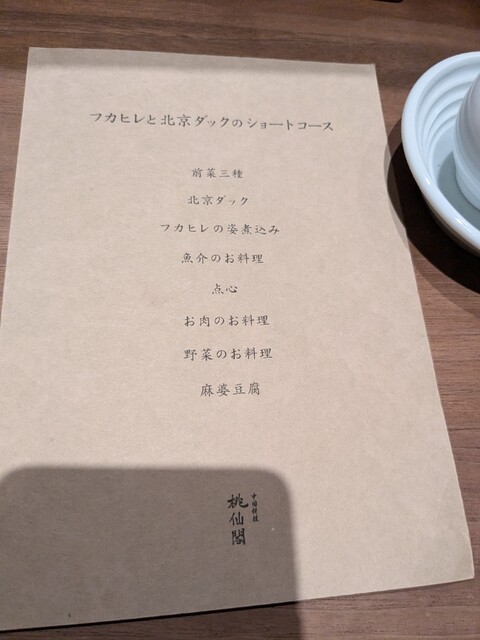 フカヒレと北京ダックのショートコース
前菜三種
北京ダック
フカヒレの姿煮込み
魚介のお料理
点心
お肉のお料理
野菜のお料理
麻婆豆腐
桃仙閣